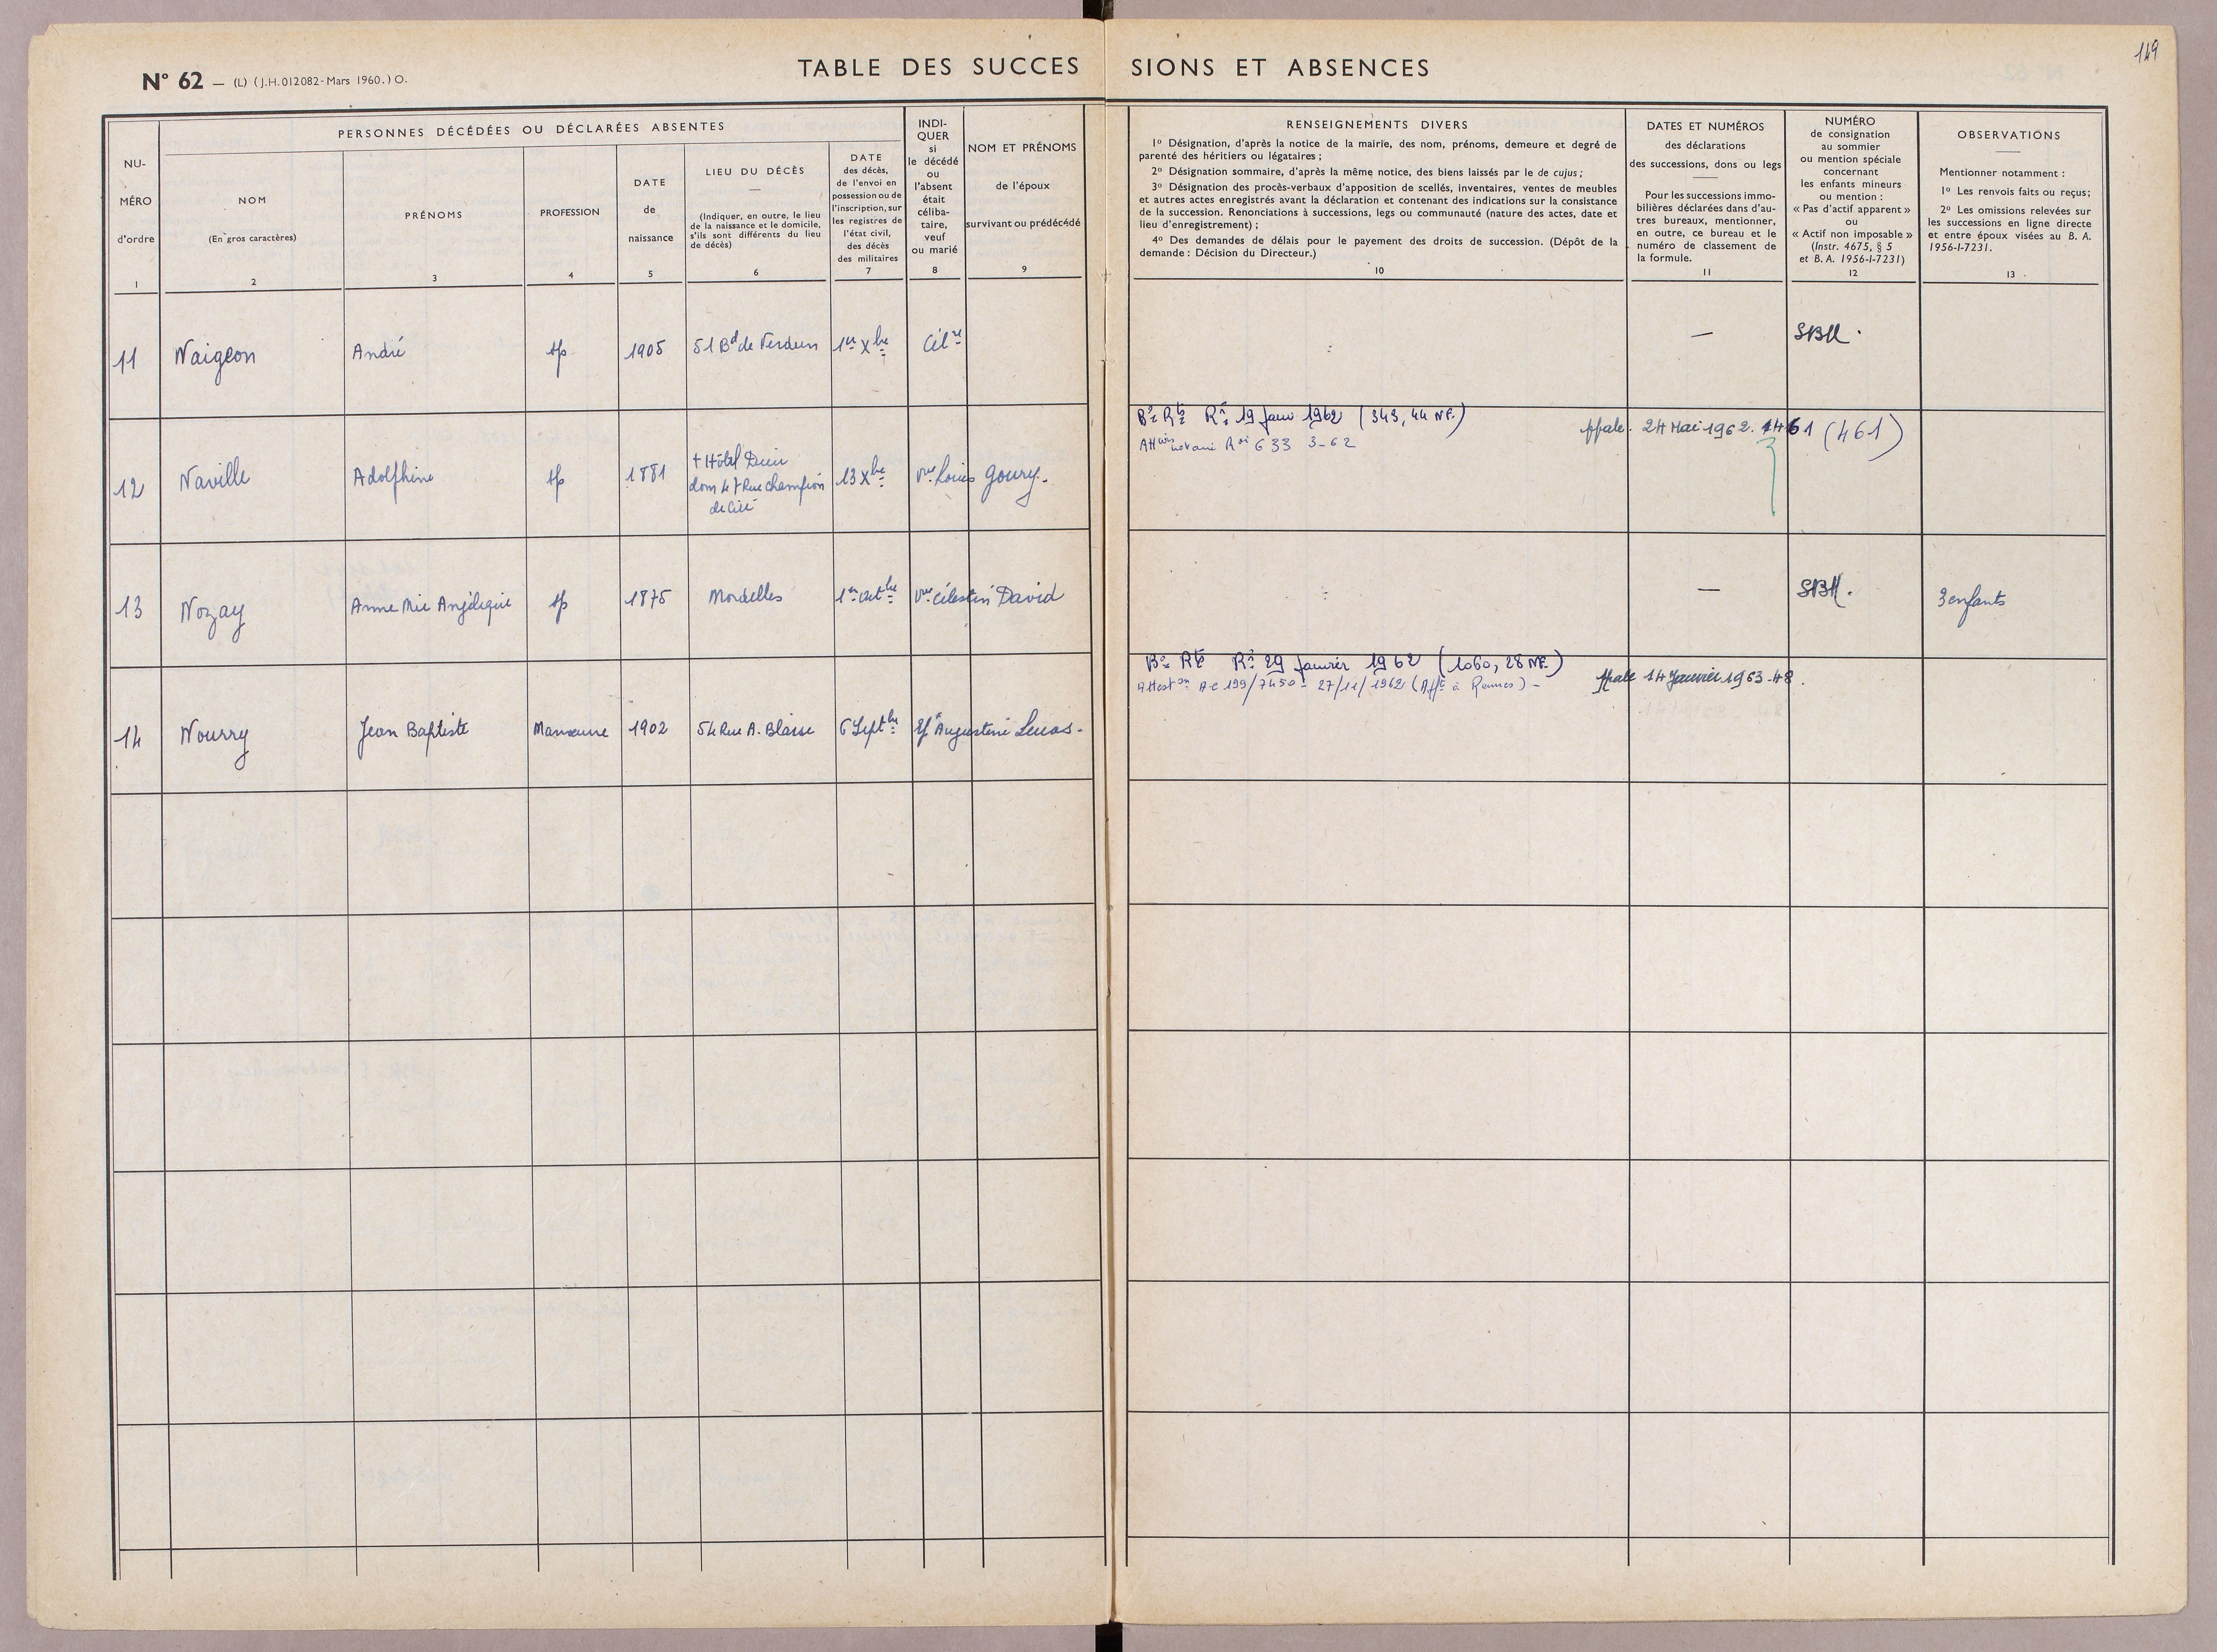 119
N° 62 — (L) (J.H. 012082 - Mars 1960.) O.
TABLE DES SUCCES SIONS ET ABSENCES
NU-
MÉRO
d'ordre
1
PERSONNES DÉCÉDÉES OU DÉCLARÉES ABSENTES
NOM
(En gros caractères)
2
PRÉNOMS
3
PROFESSION
4
DATE
de
naissance
5
LIEU DU DÉCÈS
(Indiquer, en outre, le lieu
de la naissance et le domicile,
s'ils sont différents du lieu
de décès)
6
DATE
des décès,
de l'envoi en
possession ou de
l'inscription, sur
les registres de
l'état civil,
des décès
des militaires
7
INDI-
QUER
si
le décédé
ou
l'absent
était
céliba-
taire,
veuf
ou marié
8
NOM ET PRÉNOMS
de l'époux
survivant ou prédécédé
9
RENSEIGNEMENTS DIVERS
1° Désignation, d'après la notice de la mairie, des nom, prénoms, demeure et degré de
parenté des héritiers ou légataires ;
2° Désignation sommaire, d'après la même notice, des biens laissés par le de cujus ;
3° Désignation des procès-verbaux d'apposition de scellés, inventaires, ventes de meubles
et autres actes enregistrés avant la déclaration et contenant des indications sur la consistance
de la succession. Renonciations à successions, legs ou communauté (nature des actes, date et
lieu d'enregistrement) ;
4° Des demandes de délais pour le payement des droits de succession. (Dépôt de la
demande : Décision du Directeur.)
10
DATES ET NUMÉROS
des déclarations
des successions, dons ou legs
Pour les successions immo-
bilières déclarées dans d'au-
tres bureaux, mentionner,
en outre, ce bureau et le
numéro de classement de
la formule.
11
NUMÉRO
de consignation
au sommier
ou mention spéciale
concernant
les enfants mineurs
ou mention :
« Pas d'actif apparent »
ou
« Actif non imposable »
(Instr. 4675, § 5
et B. A. 1956-I-7231)
12
OBSERVATIONS
Mentionner notamment :
1° Les renvois faits ou reçus;
2° Les omissions relevées sur
les successions en ligne directe
et entre époux visées au B. A.
1956-I-7231.
13
11 Naigeon André sp 1905 51 Bd de Verdun 1er Xbre Célre — SBM.
Rce 19 Janv 1962 (343,44 NF.)
notarié 633 3-62
ppale. 24 Mai 1962. 1461 (461)
12 Naville Adolphine sp 1881 + Hôtel Dieu
dom 47 Rue Champion
de Cicé
13 Xbre Vve Louis Goury.
13 Nozay Anne Mie Angélique sp 1875 Mordelles 1er Octbre Vve Célestin David — SBM. 3 enfants
29 Janvier 1962 (1060,28 NF.)
Atteston 199/7450 - 27/11/1962 (Affe à Rennes) -
ppale 14 Janvier 1963-48.
14 Nourry Jean Baptiste Manœuvre 1902 54 Rue A. Blaise 6 Septbre Ep Augustine Lucas -